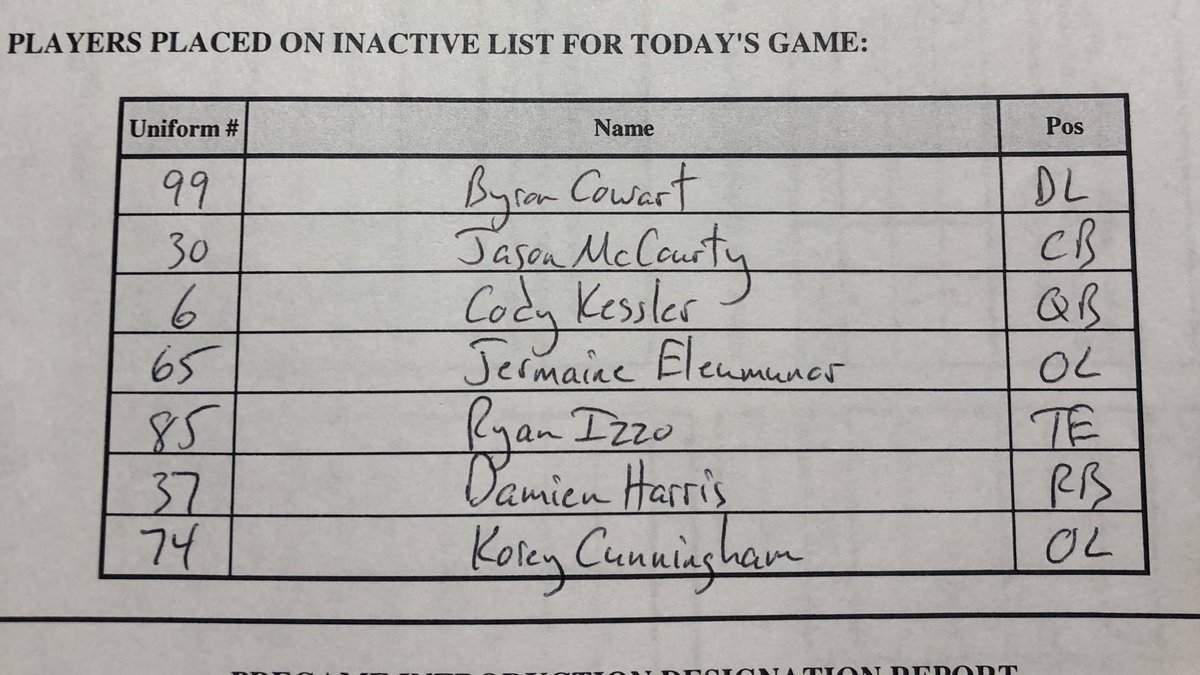 PLAYERS PLACED ON INACTIVE LIST FOR TODAY'S GAME:
Uniform # Name Pos
99 Byron Cowart DL
30 Jason McCourty CB
6 Cody Kessler QB
65 Jermaine Eleumunor OL
85 Ryan Izzo TE
37 Damien Harris RB
74 Korey Cunningham OL
PREGAME INTRODUCTION DESIGNATION REPORT